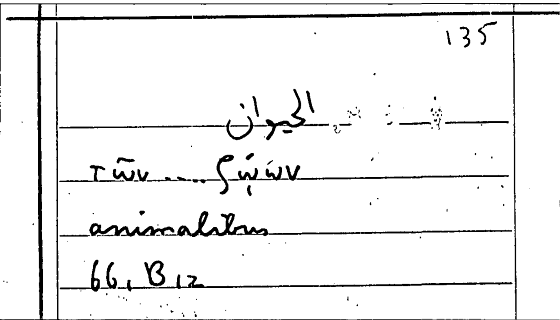 135
الحيوان
τῶν .... ζῴων
animalibus
66, B 12